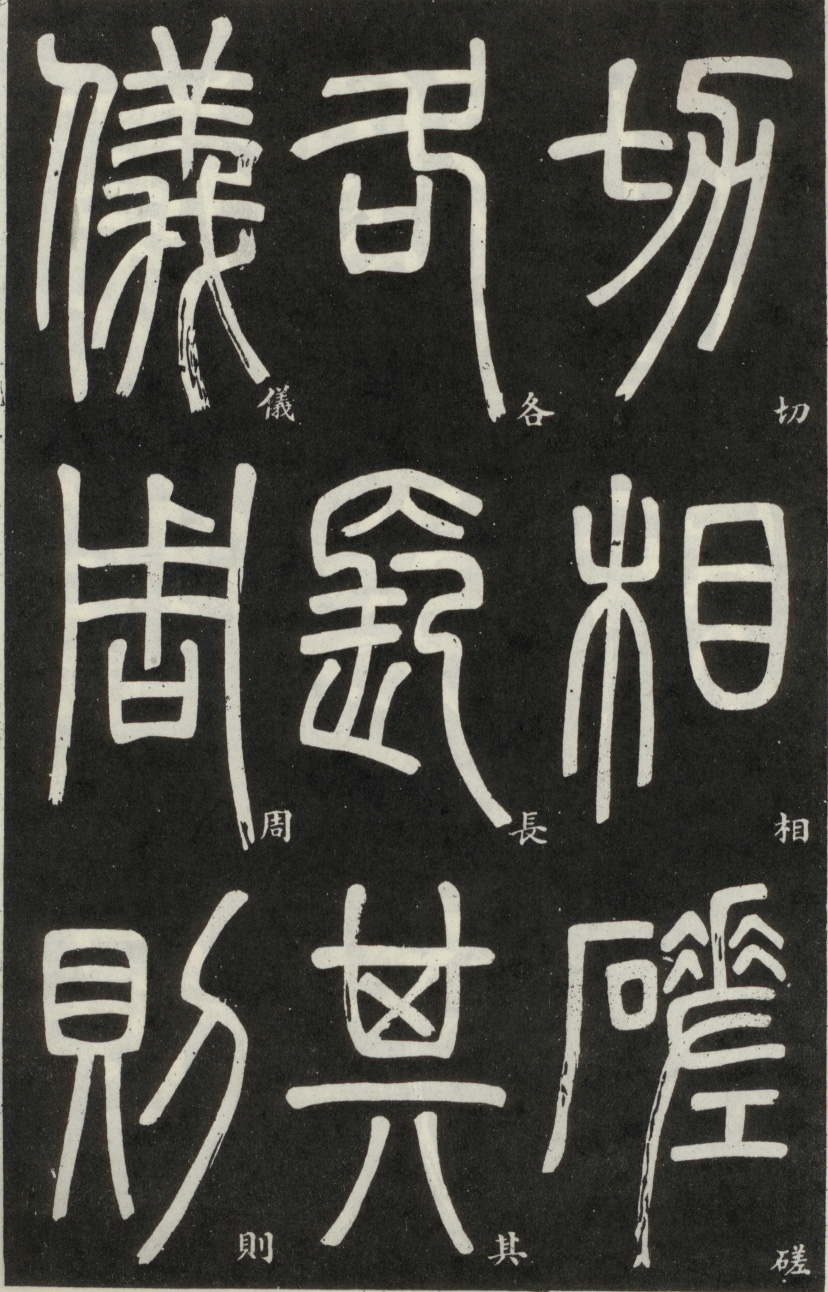 切相磋
各長其
儀周則